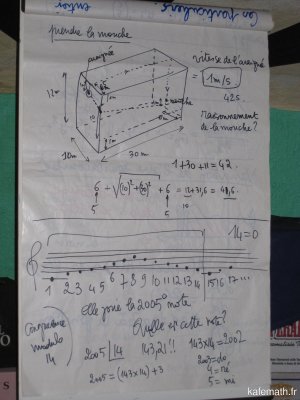 Cas particuliers
prendre la mouche
araignée
mouche
12m
10m
30 m
1m
vitesse de l'araignée
= 1m/s
42s.
raisonnement
de la mouche?
1+30+11=42.
6 + √(10)²+(30)² + 6 = 12+31,6 = 43,6.
5
5
10
14=0
1 2 3 4 5 6 7 8 9 10 11 12 13 14 15 16 17 ....
Elle joue la 2005° note
Quelle est cette note?
Congruence
modulo
14
2005 14 143,21!! 143×14 = 2002
2003=do,
2005 = (143×14) + 3
4 = ré
5 = mi
kafemath.fr